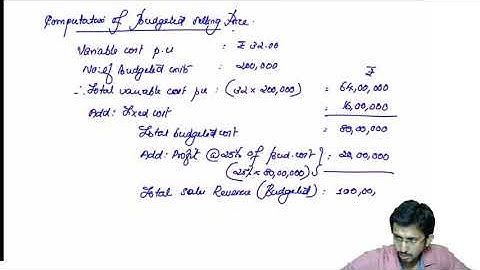 Computation of Budgeted Selling Price.
Variable cost p.u : ₹ 32.00
No: of Budgeted units : 200,000
₹
∴ Total variable cost pu : (32 x 200,000) = 64,00,000
Add: Fixed cost = 16,00,000
Total budgeted cost = 80,00,000
Add: Profit @ 25% of Bud. cost } = 20,00,000
(25% x 80,00,000)
Total sales Revenue (Budgeted) : 100,00,